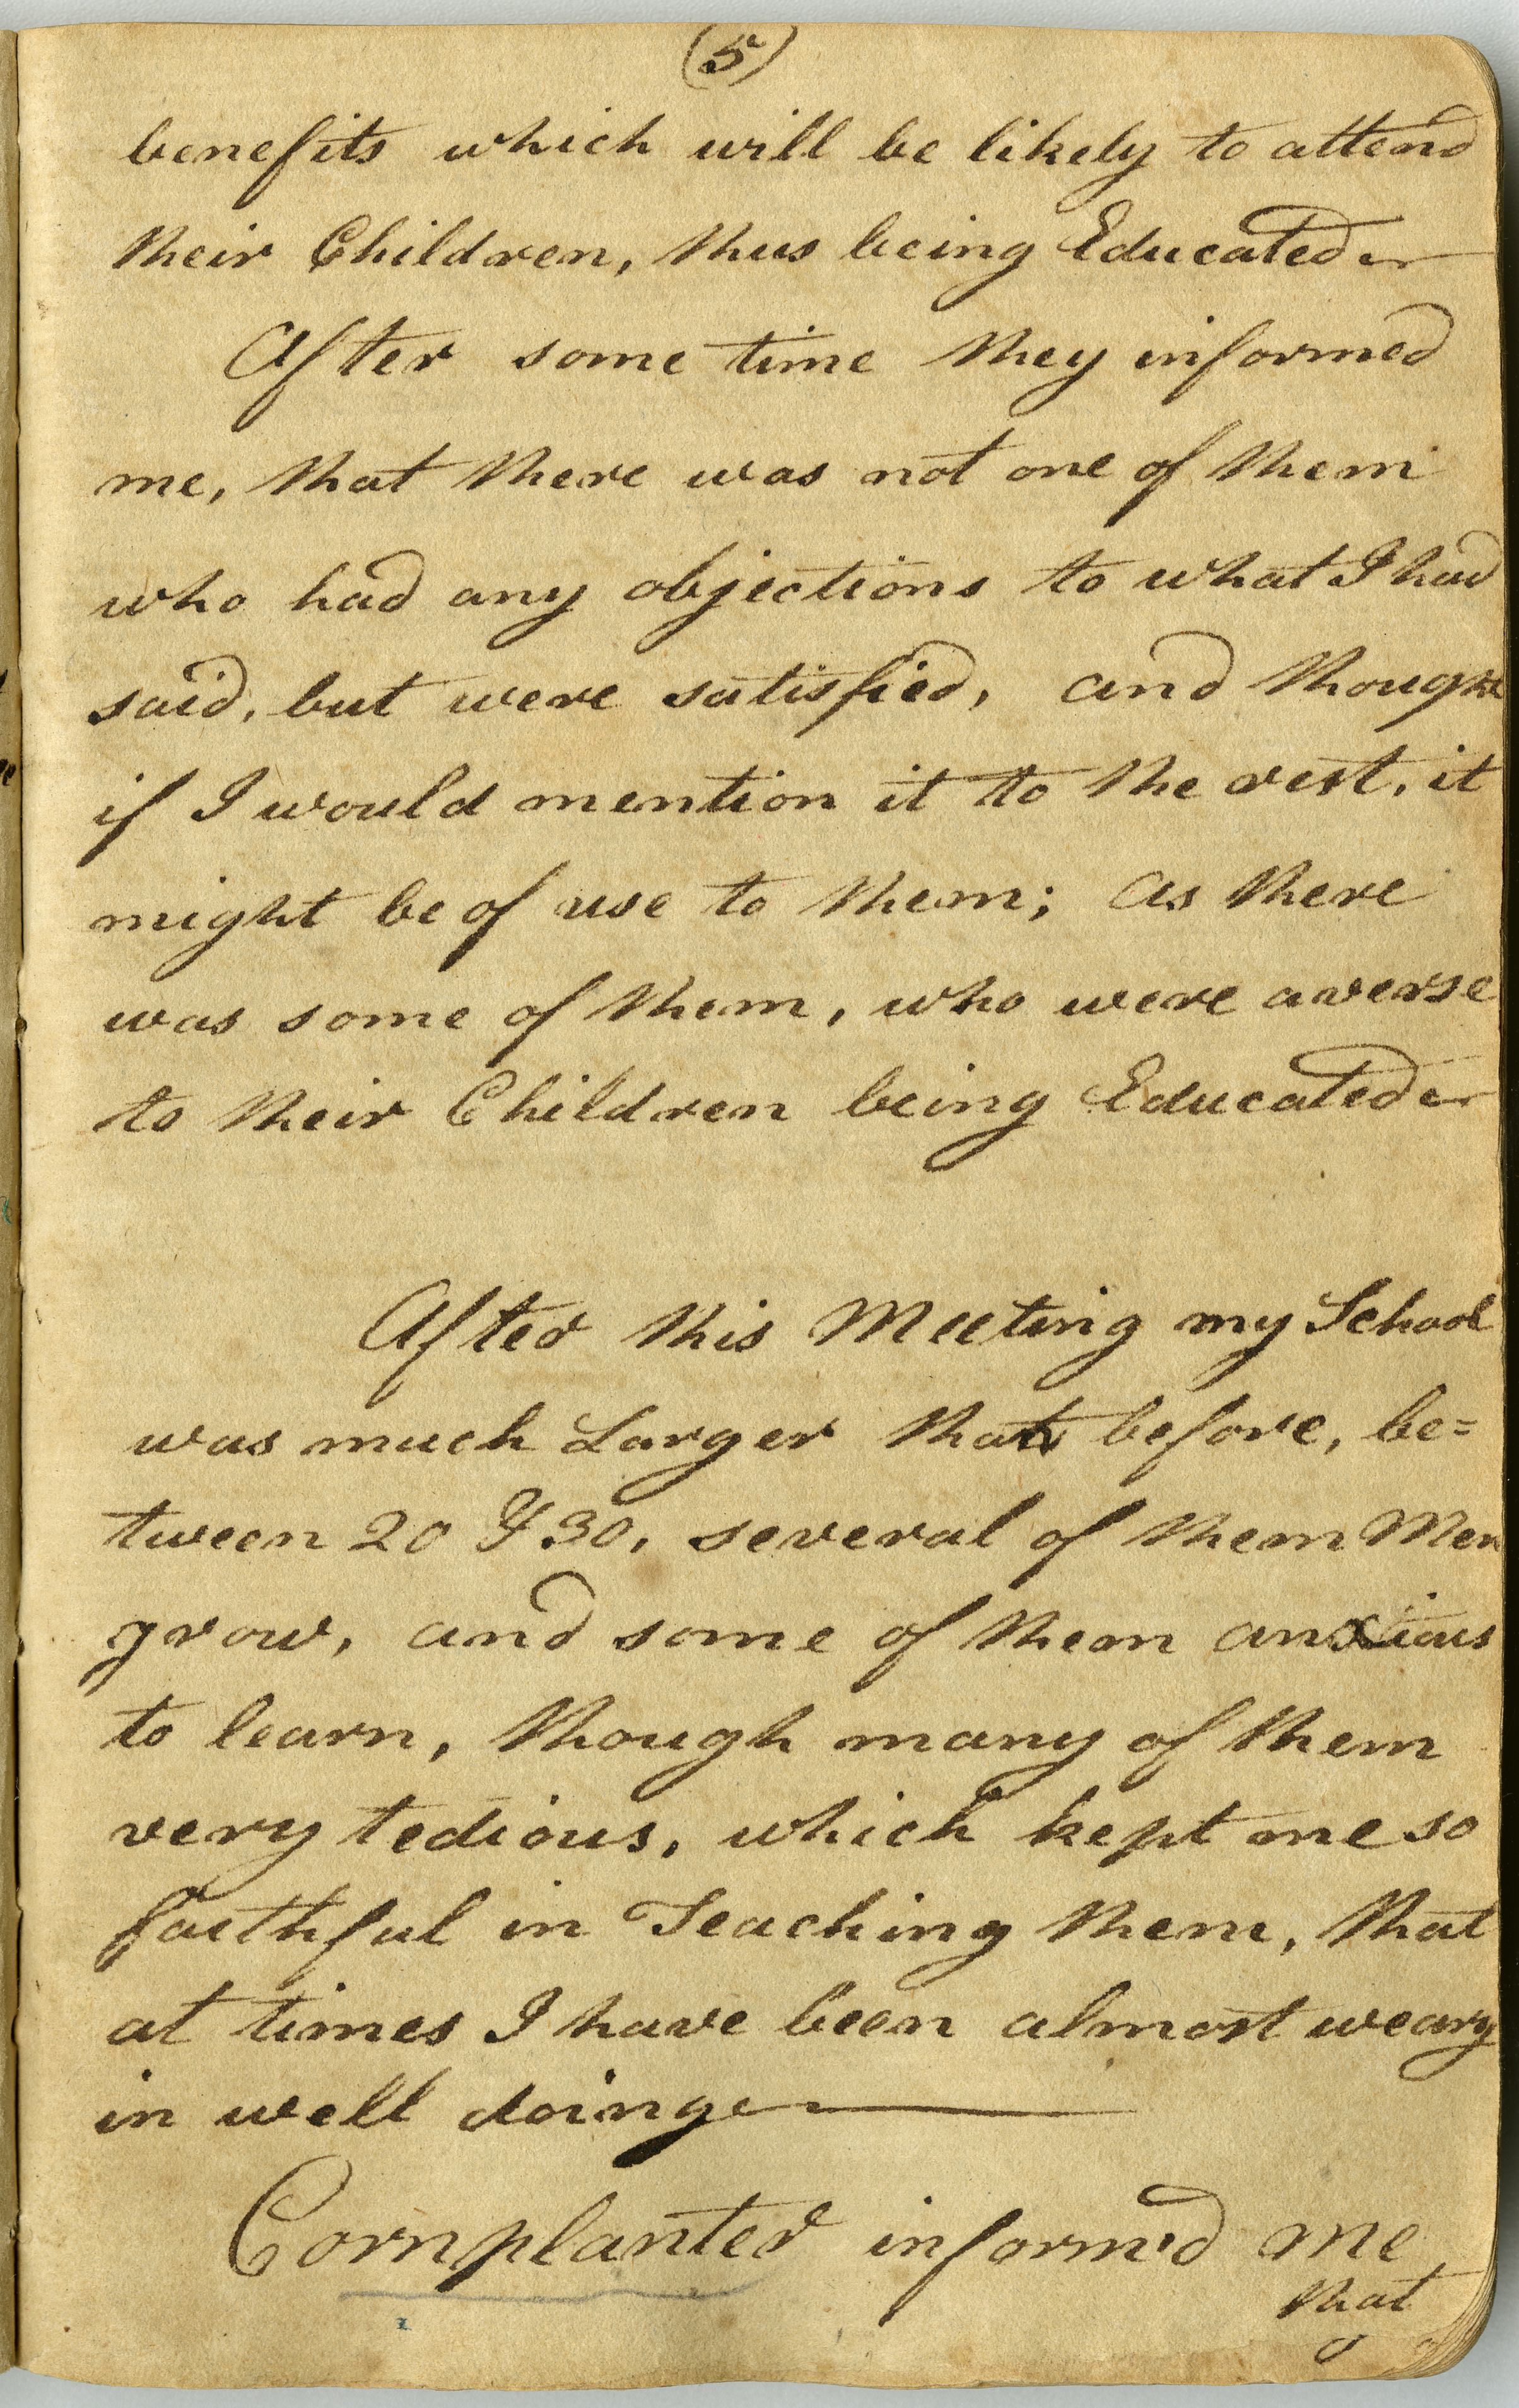 (5)
benefits which will be likely to attend
their Children, thus being Educated
After some time they informed
me, that there was not one of them
who had any objections to what I had
said, but were satisfied, and thought
if I would mention it to the rest, it
might be of use to them; as there
was some of them, who were averse
to their Children being Educated
After this Meeting my School
was much Larger than before, be=
tween 20 & 30, several of them Men
grow, and some of them anxious
to learn, though many of them
very tedious, which kept me so
faithful in Teaching them, that
at times I have been almost weary
in well doing
Cornplanter inform'd me
that